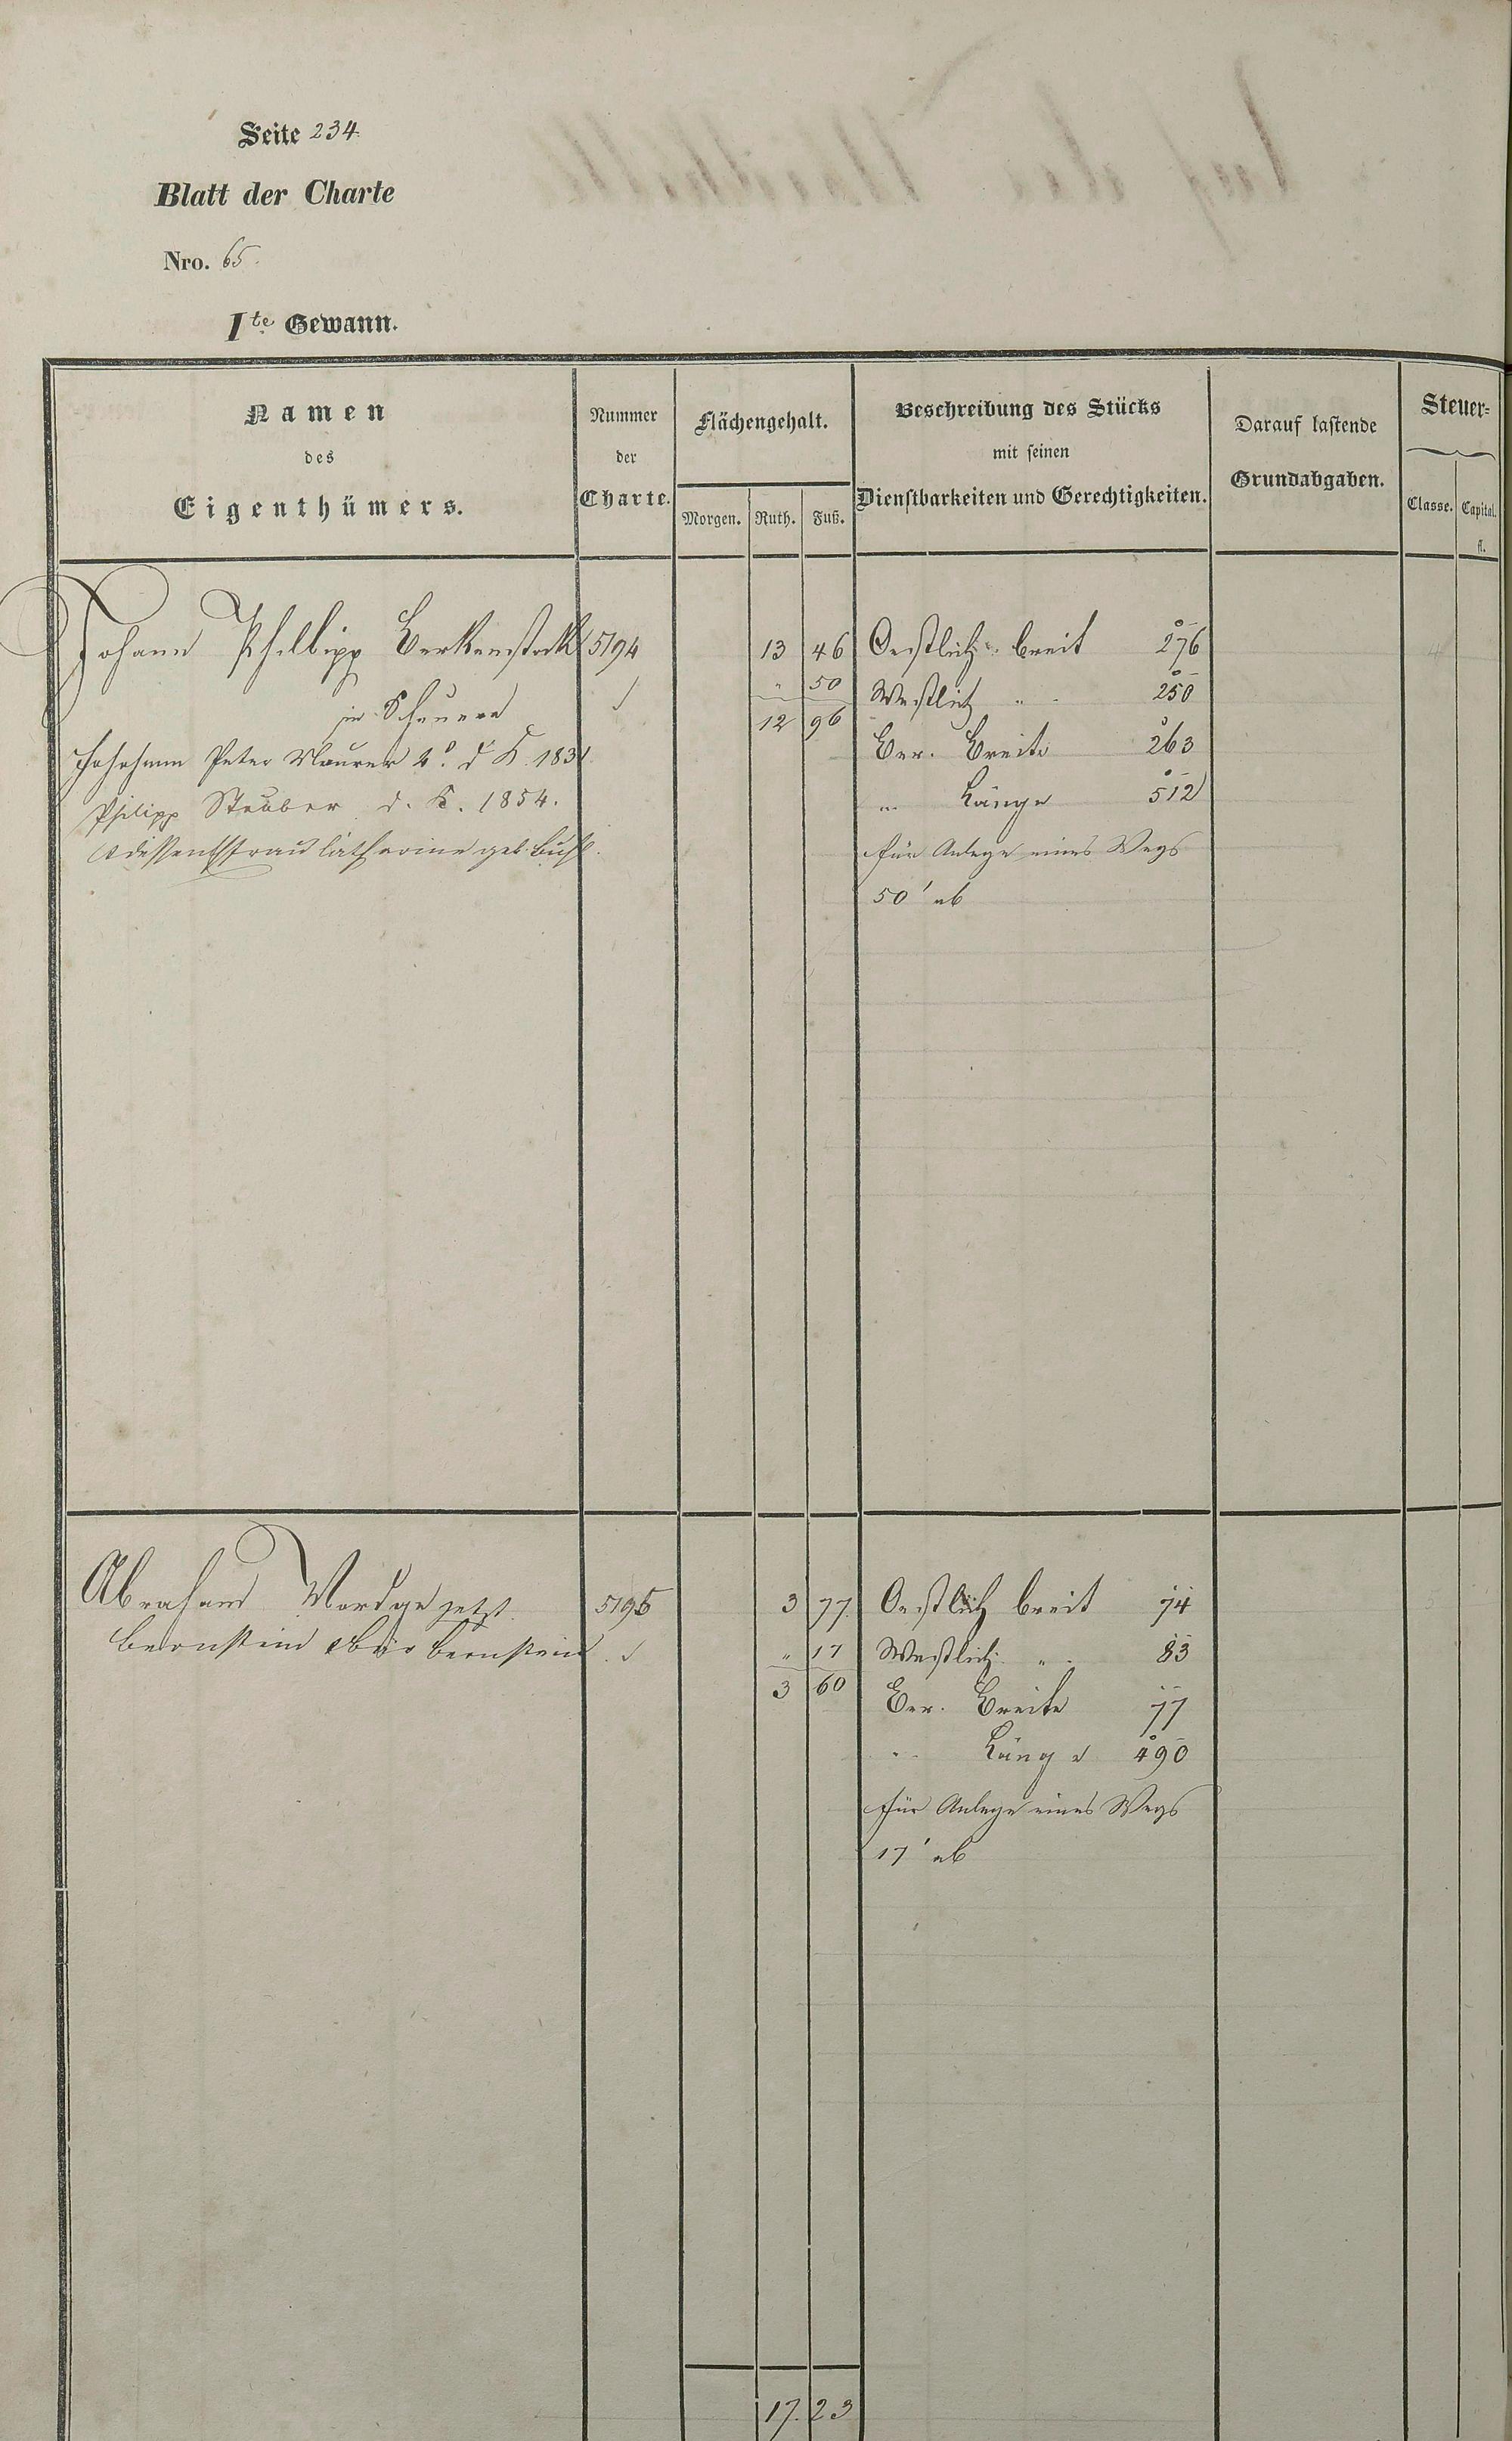 Seite 234.
Blatt der Charte
Nro. 65.
I te Gewann.
Namen
des
Eigenthümers.
Nummer
der
Charte.
Flächengehalt.
Morgen. Ruth. Fuß.
Beschreibung des Stücks
mit seinen
Dienstbarkeiten und Gerechtigkeiten.
Darauf lastende
Grundabgaben.
Steuer=
Classe. Capital.
fl.
Johann Philipp Berkenstock 5194 13 46 Oestlich breit 276
in Scheuern " 50 Westlich " 250
12 96 Ber. Breite 263
Peter Maurer 2. d. K. 1831
" Länge 512
Philipp Stauber d. K. 1854.
dessen Frau Catharine geb. Buhl. für Anlage eines Wegs
50' ab
Abraham jetzt 5195 3 77 Oestlich breit 74
Bernstein Bernstein " 17 Westlich " 83
3 60 Ber. Breite 77
" Länge 490
für Anlage eines Wegs
17' ab
17. 23